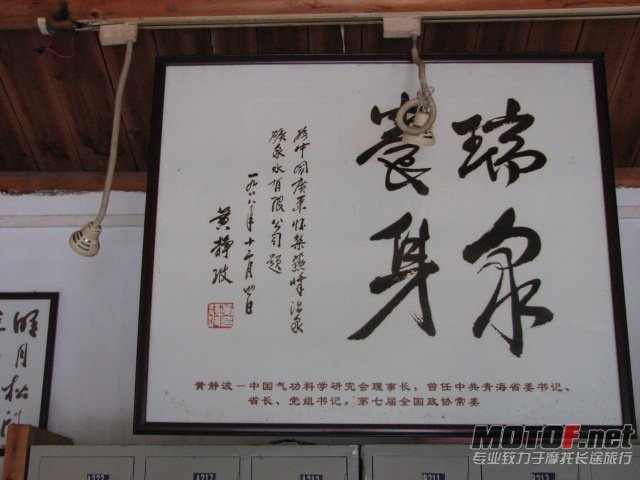 瑞泉
養身
为中国广东怀集燕峰温泉
矿泉水有限公司题
一九八八年十二月四日
黄静波
黄静波－中国气功科学研究会理事长，曾任中共青海省委书记、
省长、党组书记，第七届全国政协常委
明月松
MOTOF.net
专业致力于摩托长途旅行